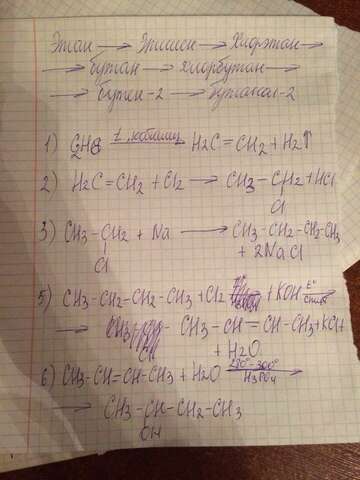 Этан → Этилен → Хлорэтан →
→ бутан → хлорбутан →
→ бутен-2 → бутанол-2
1) C2H6 t, катализ H2C=CH2 + H2↑
2) H2C=CH2 + Cl2 → CH3-CH2 + HCl
Cl
3) CH3-CH2 + Na → CH3-CH2-CH2-CH3
Cl + 2NaCl
5) CH3-CH2-CH2-CH3 + Cl2 + KOH t° спирт
→ CH3-CH=CH-CH3 + KCl
+ H2O
6) CH3-CH=CH-CH3 + H2O 280°-300° H3PO4
→ CH3-CH-CH2-CH3
OH